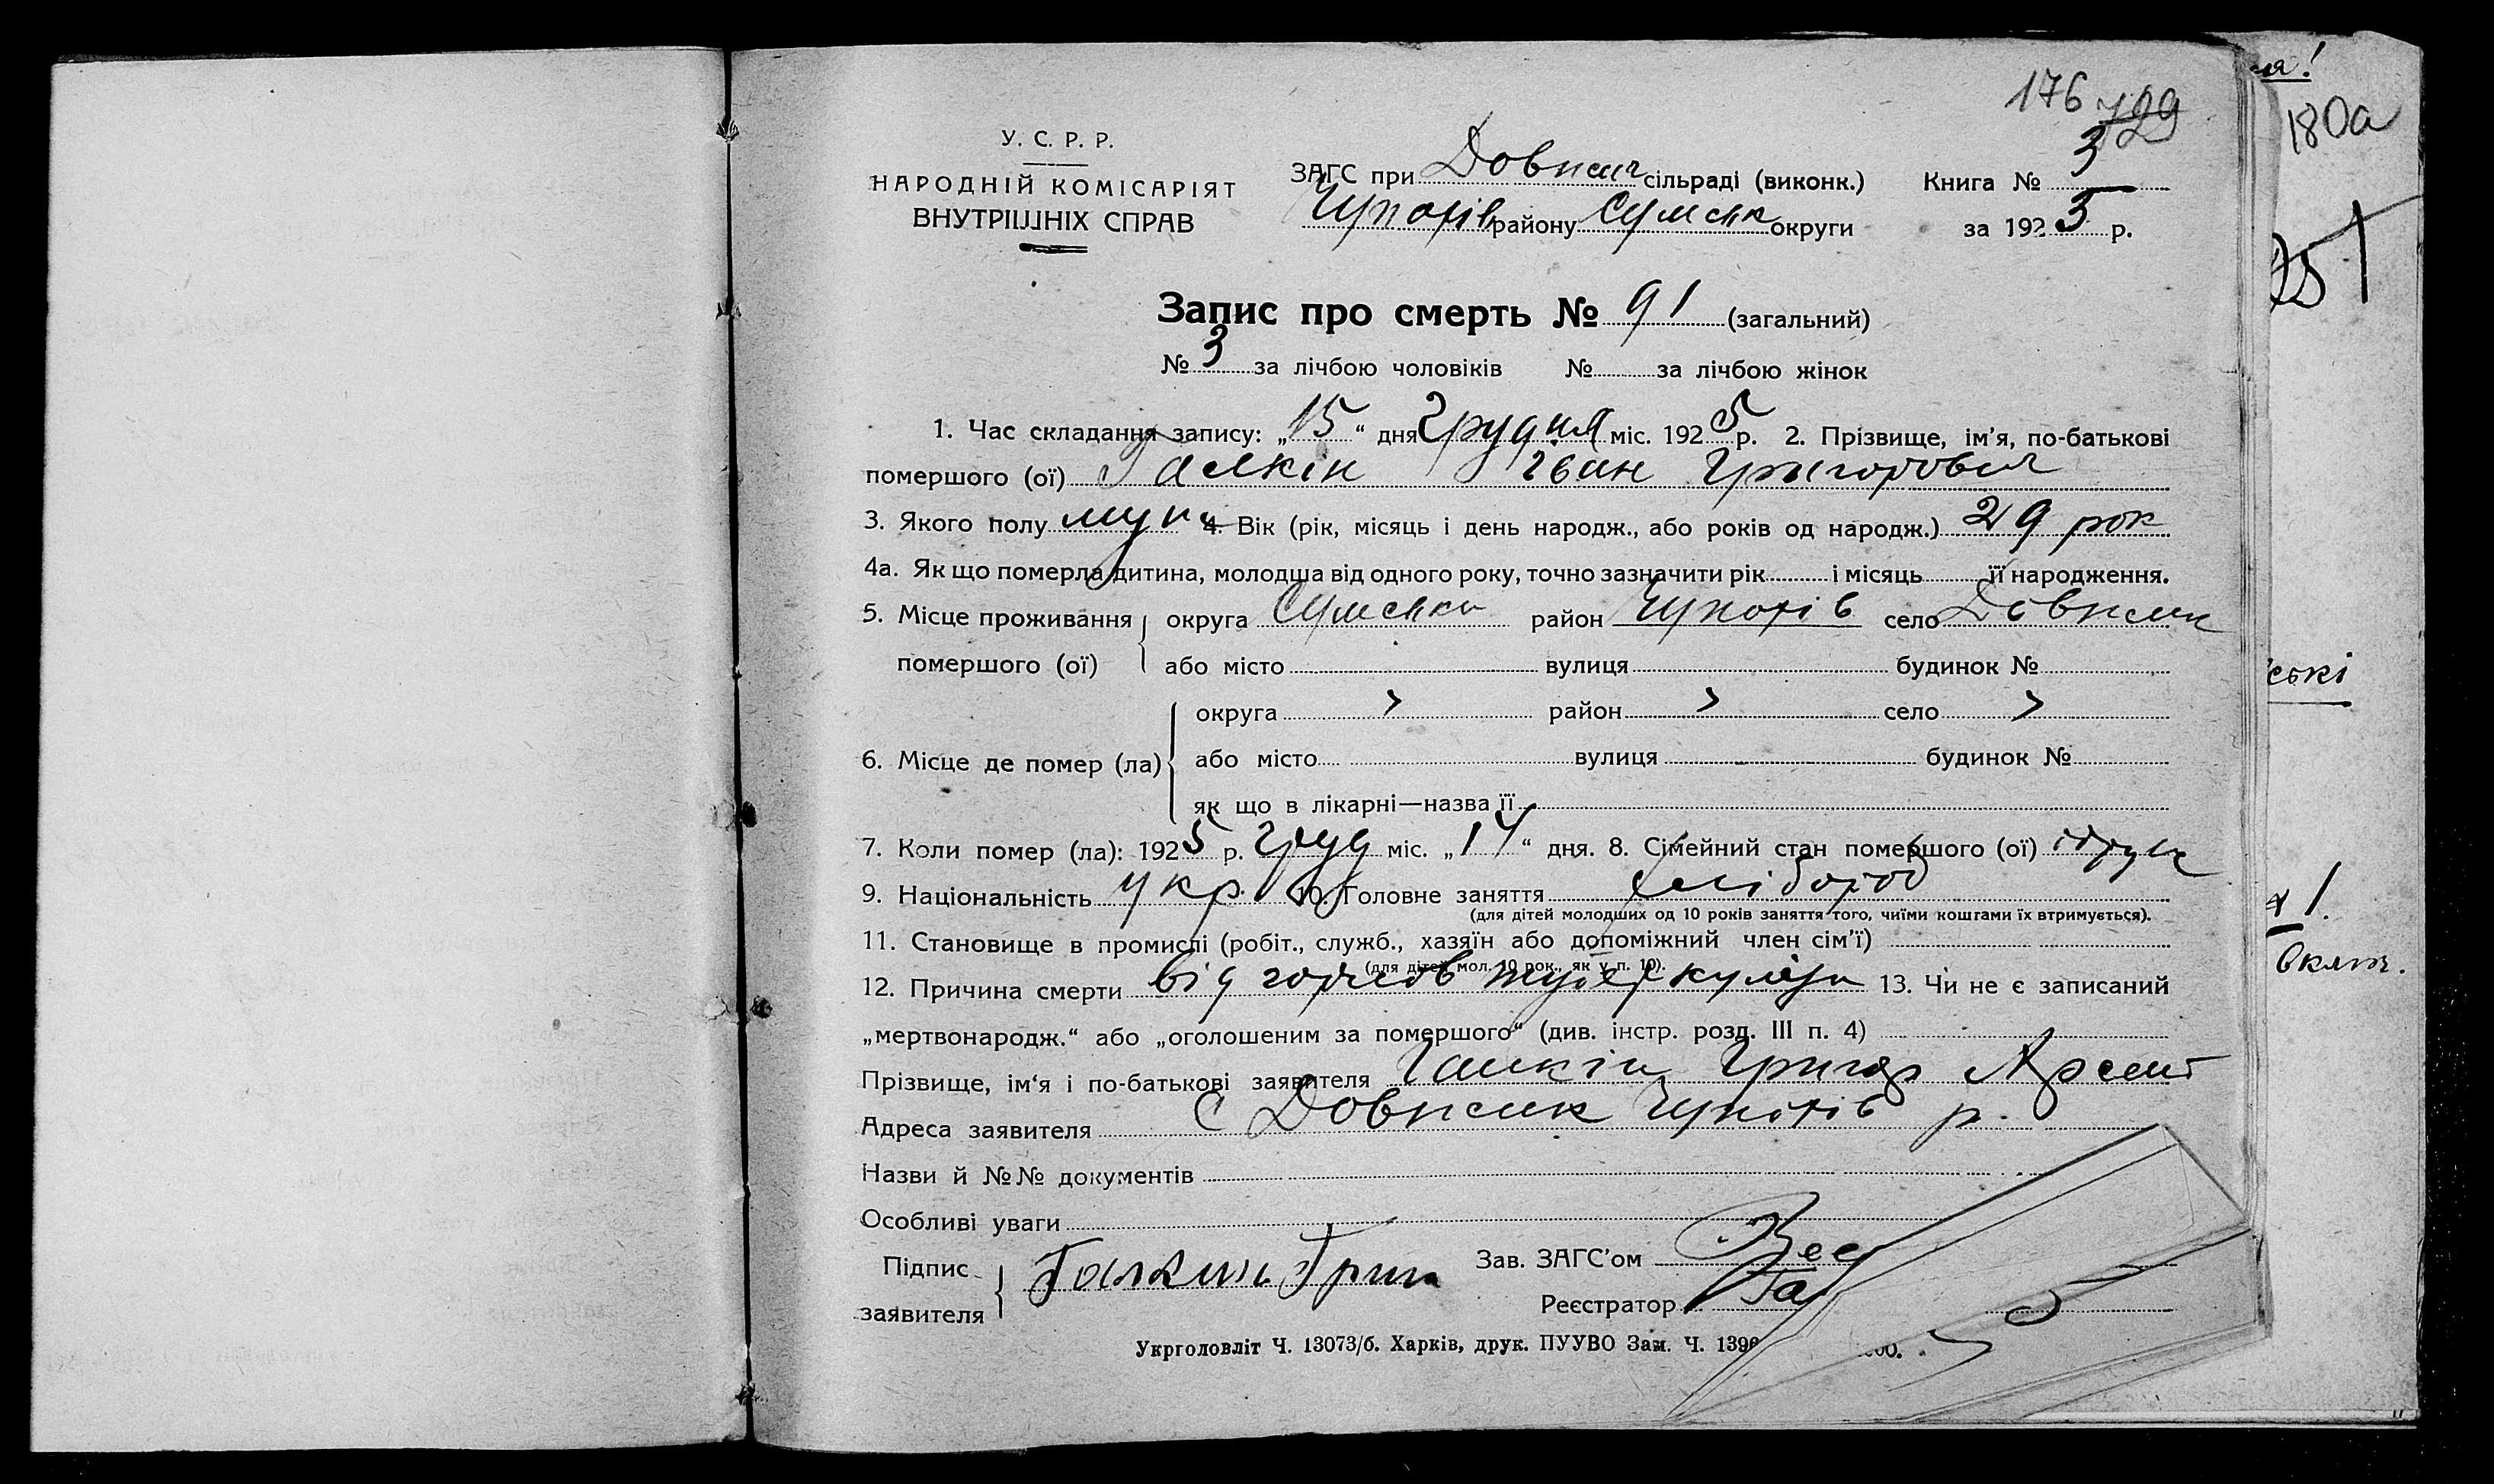 176 729
У. С. Р. Р.
НАРОДНІЙ КОМІСАРІЯТ
ВНУТРІШНІХ СПРАВ
ЗАГС при Довжич сільраді (виконк.) Книга № 3
Чупахів району Сумськ округи за 1925 р.
Запис про смерть № 91 (загальний)
№ 3 за лічбою чоловіків № за лічбою жінок
1. Час складання запису: „15“ дня Грудня міс. 1925 р. 2. Прізвище, ім’я, по-батькові
помершого (ої) Галкін Іван Григорович
3. Якого полу муж 4. Вік (рік, місяць і день народж., або років од народж.) 29 рок
4а. Як що померла дитина, молодша від одного року, точно зазначити рік і місяць її народження.
5. Місце проживання округа Сумська район Чупахів село Довжик
помершого (ої) або місто вулиця будинок №
округа район село
6. Місце де помер (ла) або місто вулиця будинок №
як що в лікарні—назва її
7. Коли помер (ла): 1925 р. Груд міс. „14“ дня. 8. Сімейний стан помершого (ої)
9. Національність Укр. 10. Головне заняття хлібороб
(для дітей молодших од 10 років заняття того, чиїми коштами їх втримується).
11. Становище в промислі (робіт., служб., хазяїн або допоміжний член сім’ї)
(для дітей мол. 10 рок., як у п. 10).
12. Причина смерти від горлов туберкульозу 13. Чи не є записаний
„мертвонародж.“ або „оголошеним за помершого“ (див. інстр. розд. III п. 4)
Прізвище, ім‘я і по-батькові заявителя Галкін Григор Арсент
Адреса заявителя С Довжик Чупахів р.
Назви й №№ документів
Особливі уваги
Підпис Галкинь Григ Зав. ЗАГС’ом
заявителя Реєстратор
Укрголовліт Ч. 13073/б. Харків, друк. ПУУВО Зам. Ч. 139
180а
ські
1.
включ.